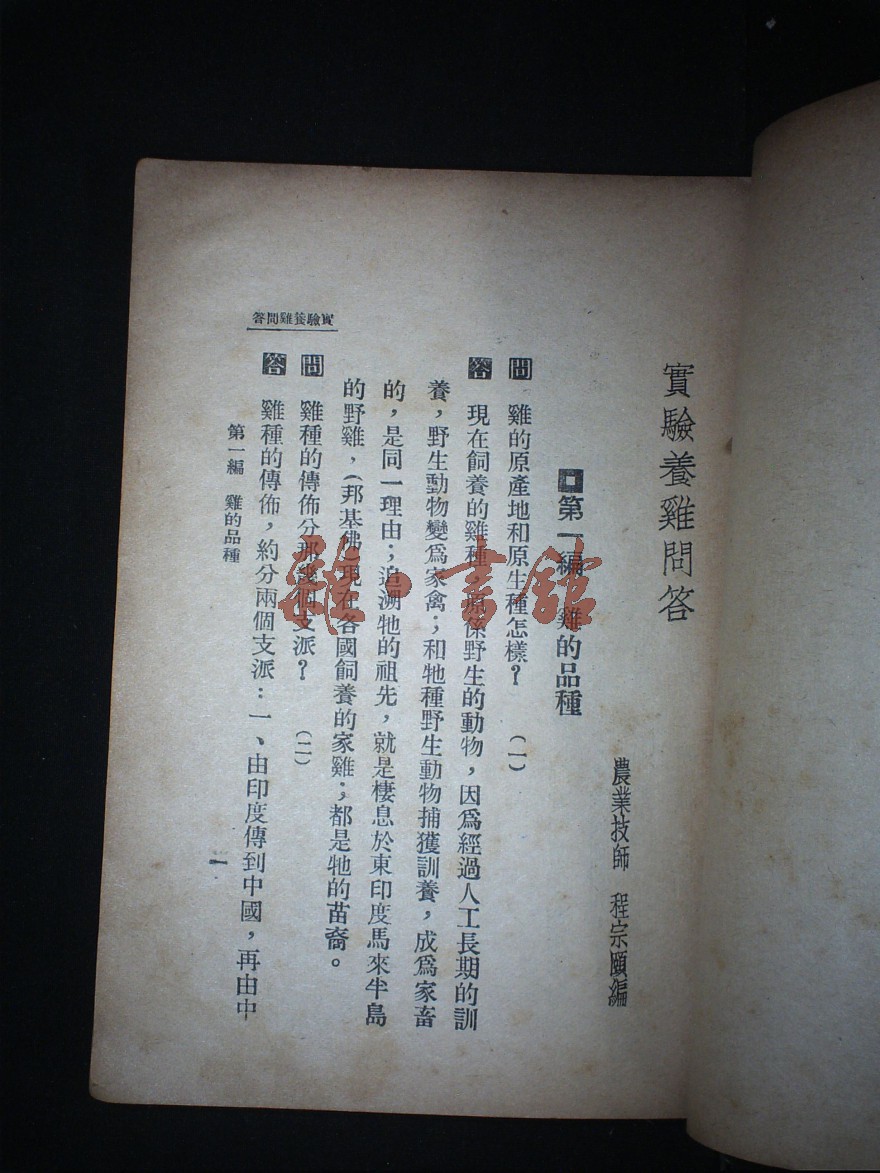 實驗養雞問答
農業技師　程宗頤編
第一編　雞的品種
問　雞的原產地和原生種怎樣？　(一)
答　現在飼養的雞種，原係野生的動物，因爲經過人工長期的訓
養，野生動物變爲家禽；和牠種野生動物捕獲訓養，成爲家畜
的，是同一理由；追溯牠的祖先，就是棲息於東印度馬來半島
的野雞，(邦基佛)現在各國飼養的家雞；都是牠的苗裔。
問　雞種的傳佈分那幾個支派？　(二)
答　雞種的傳佈，約分兩個支派：一、由印度傳到中國，再由中
實驗養雞問答
第一編　雞的品種
一
雞書館